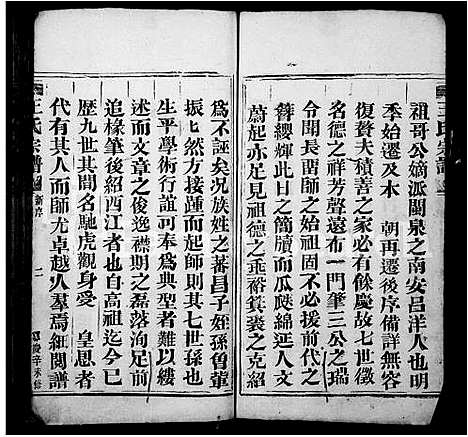 祖哥公嫡派閩泉之南安呂洋人也明
季始遷及木　朝再遷後序備詳無容
復贅夫積善之家必有餘慶故七世徵
名德之祥芳聲遠布一門筆三公之瑞
今開長畱師等幸際盛世沐
簪纓輝此日之簡牘而瓜瓞綿延人文
蔚起亦足見祖德之垂裕箕裘之克紹
爲不誣矣况族姓之蕃昌子姪孫曾輩
振七然方接踵而起師則其七世孫也
生平學術行誼可奉爲典型者難以縷
述而文章之俊逸襟期之磊落洵足前
追椽筆後紹西江者也自高祖迄今已
歷九世其間名馳虎觀身受　皇恩者
代有其人而師尤卓越人羣焉細閱譜
王氏宗譜
新序
二